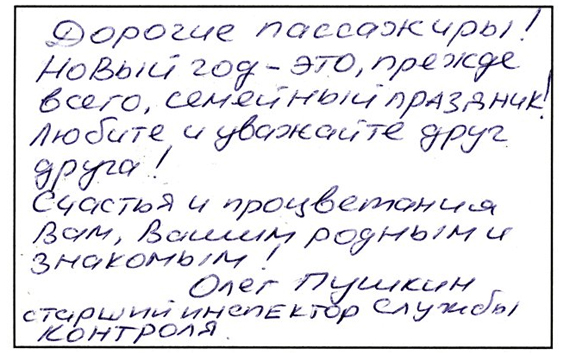 Дорогие пассажиры!
Новый год - это, прежде
всего, семейный праздник!
Любите и уважайте друг
друга!
Счастья и процветания
Вам, Вашим родным и
знакомым!
Олег Пушкин
старший инспектор службы
контроля